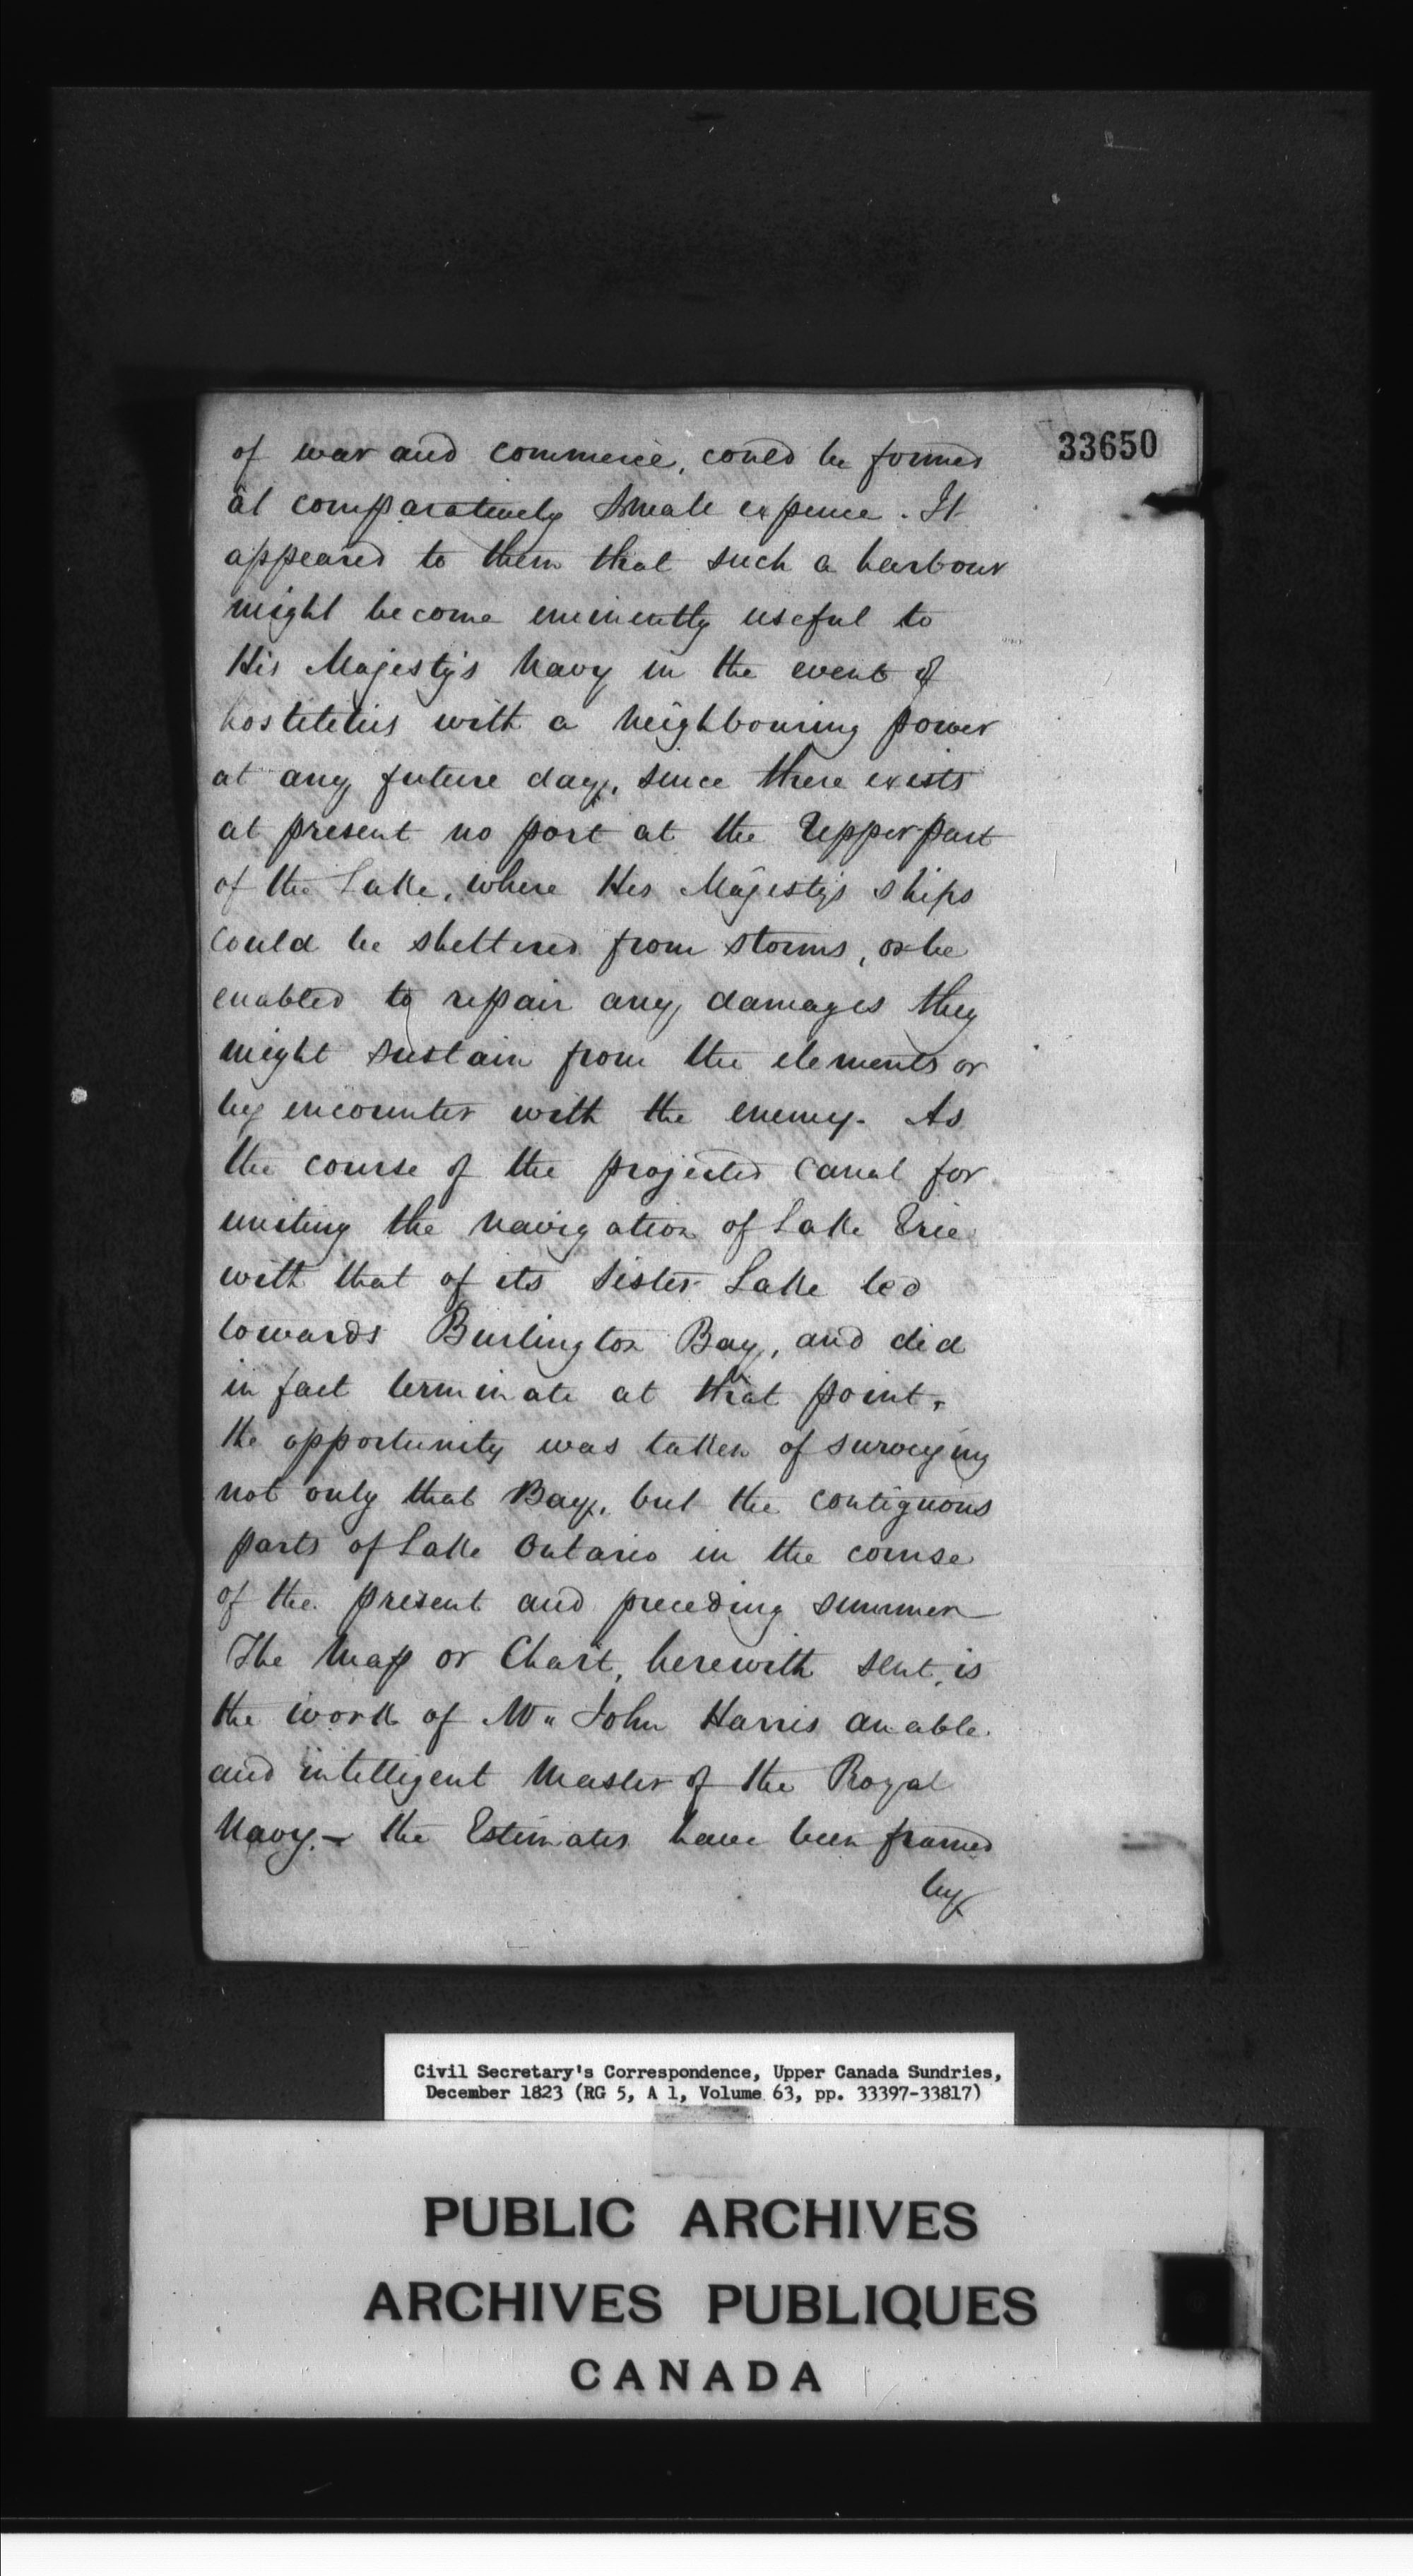 33650
of war and commerce, could be formed
at comparatively small expence. It
appeared to them that such a harbour
might become eminently useful to
His Majesty's Navy in the event of
hostilities with a neighbouring power
at any future day, since there exists
at present no port at the Upper part
of the Lake, where His Majesty's ships
could be sheltered from storms, or be
enabled to repair any damages they
might sustain from the elements or
by encounter with the enemy. As
the course of the projected canal for
uniting the navigation of Lake Erie
with that of its Sister Lake led
towards Burlington Bay, and did
in fact terminate at that point,
the opportunity was taken of surveying
not only that Bay, but the contiguous
parts of Lake Ontario in the course
of the present and preceding summer
The Map or Chart, herewith sent, is
the work of Mr John Harris an able
and intelligent Master of the Royal
Navy. — the Estimates have been framed
by
Civil Secretary's Correspondence, Upper Canada Sundries,
December 1823 (RG 5, A 1, Volume 63, pp. 33397-33817)
PUBLIC ARCHIVES
ARCHIVES PUBLIQUES
CANADA